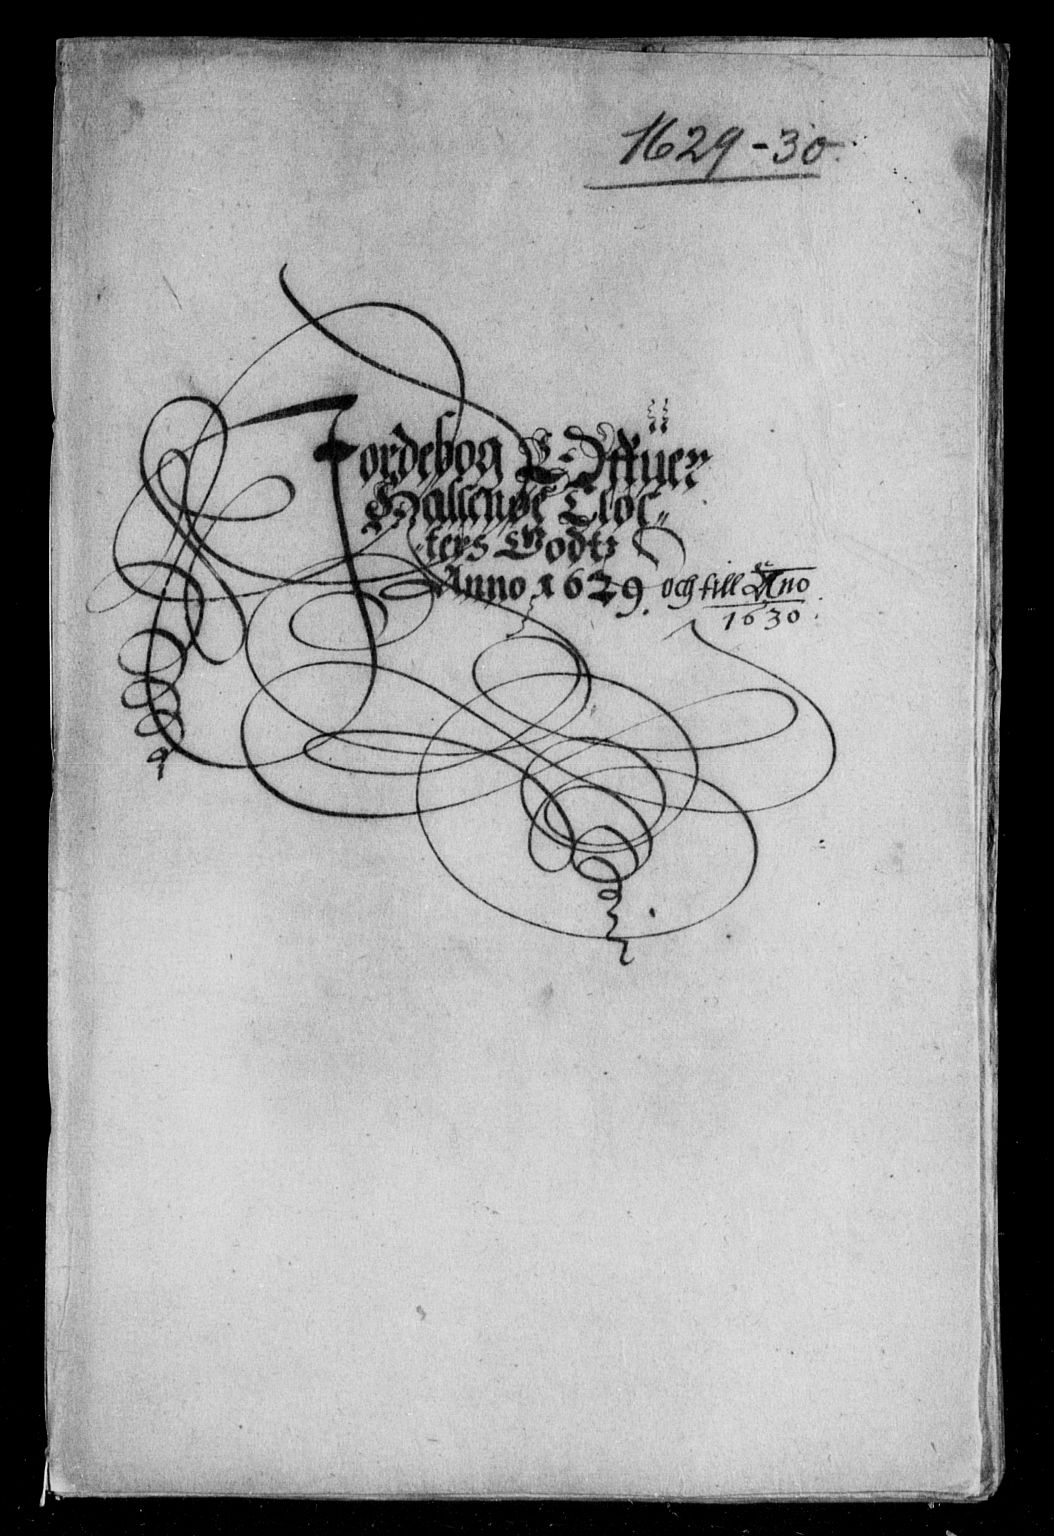 1629-30.
Jordebog Offuer
Halsenøe Cloe-
sters Godtz
Anno 1629. och till Ao̅no
1630.